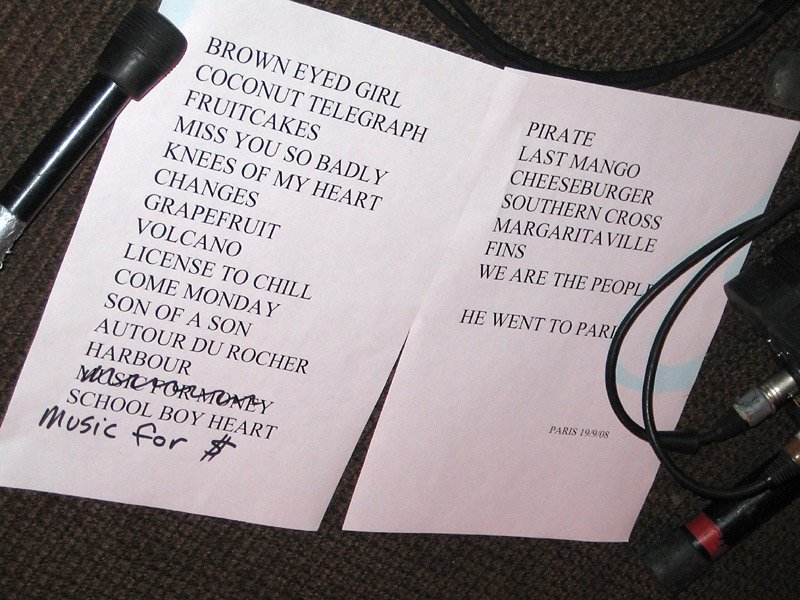 BROWN EYED GIRL
COCONUT TELEGRAPH
FRUITCAKES
MISS YOU SO BADLY
KNEES OF MY HEART
CHANGES
GRAPEFRUIT
VOLCANO
LICENSE TO CHILL
COME MONDAY
SON OF A SON
AUTOUR DU ROCHER
HARBOUR
MUSIC FOR MONEY
SCHOOL BOY HEART
Music for $
PIRATE
LAST MANGO
CHEESEBURGER
SOUTHERN CROSS
MARGARITAVILLE
FINS
WE ARE THE PEOPL
HE WENT TO PARI
PARIS 19/9/08